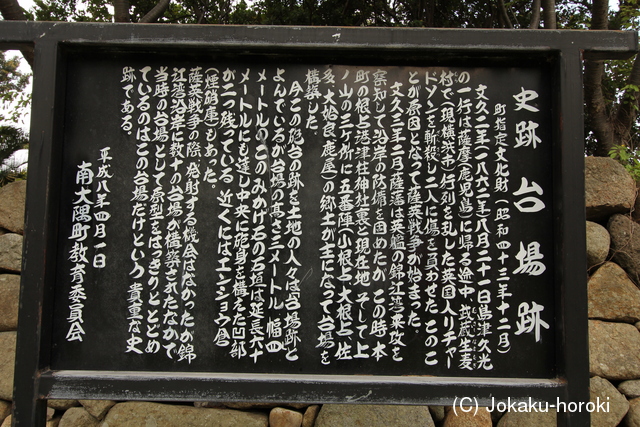 史跡 台場跡
町指定文化財(昭和四十三年十二月)
文久二年(一八六二)年八月二十一日島津久光
の一行は薩摩(鹿児島)に帰る途中、武蔵生麦
村で(現横浜市)行列を乱した英国人リチャー
ドソンを斬殺し二人に傷を負わせた このこ
とが原因となって薩英戦争が始まった。
文久三年二月薩藩は英艦の錦江湾来攻を
察知して沿岸の防備を固めたが、この時本
町の根占港津柱神社裏と現在地 そして上
ノ山の三ヶ所に五番陣(小根占 大根占 佐
多 大姶良 鹿屋)の郷土が主になって台場を
構築した。
今この砲台の跡を土地の人々は台場跡と
よんでいるが台場の高さ三メートル 幅四
メートル このみかげ石の石道は延長六十
メートルにも達し中央に砲身を構えた凹部
が二つ残っている 近くにはエンショウ倉
(煙硝庫)もあった。
薩英戦争の際 発射する機会はなかったが錦
江湾沿岸に数十の台場が構築されたなかで
当時の台場として原型をはっきりととどめ
ているのはこの台場だけという 貴重な史
跡である。
平成八年四月一日
南大隅町教育委員会
(C) Jokaku-horoki